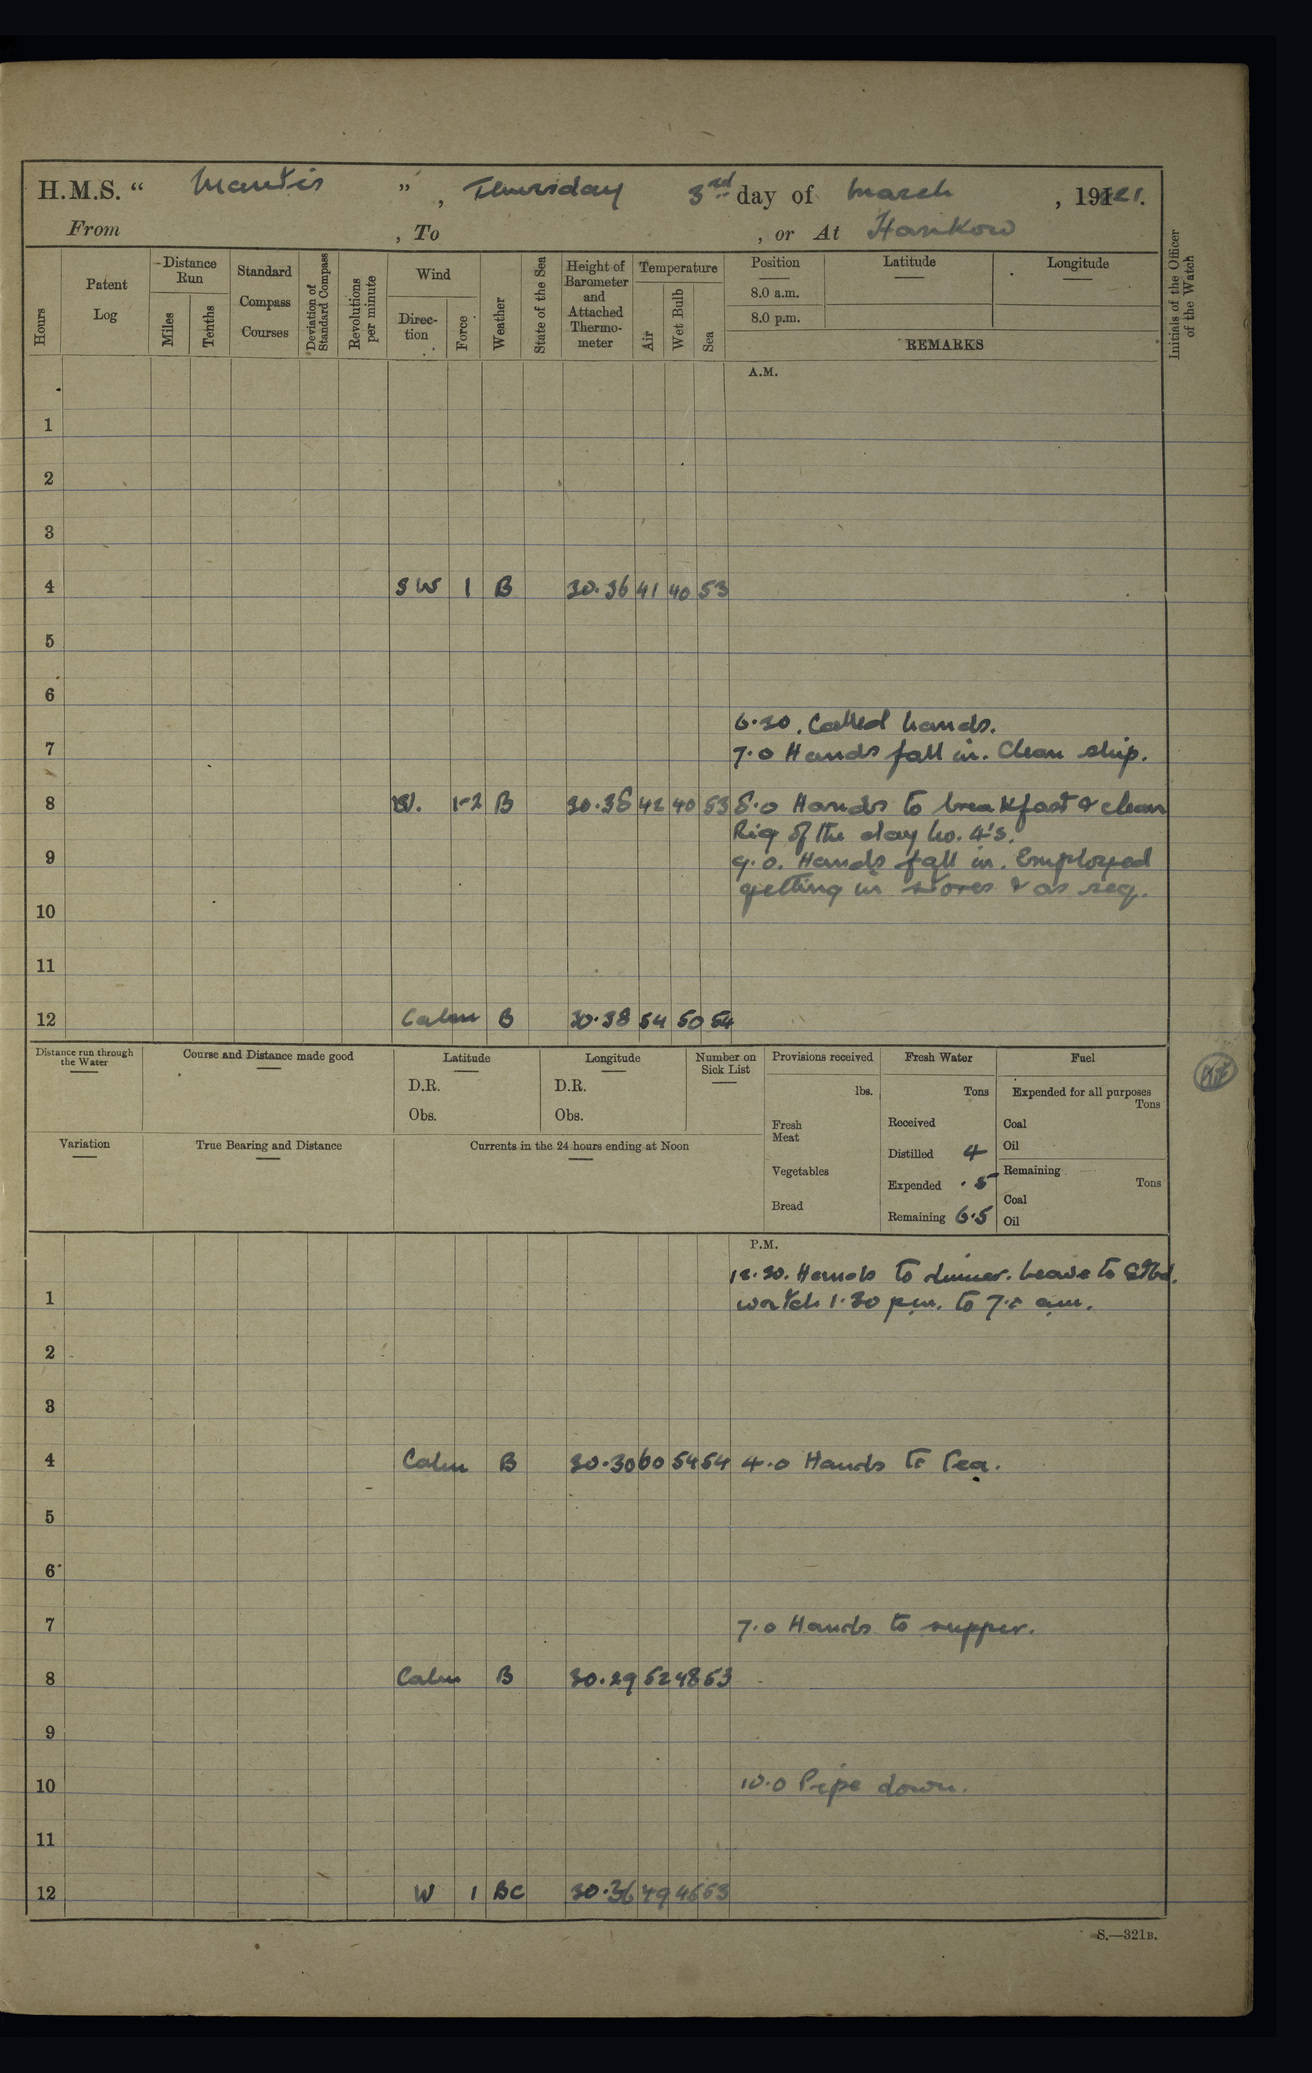 H.M.S. “ Mantis ” , Thursday 3rd day of March , 1921.
From , To , or At Hankow
Hours
Patent Log
Distance Run
Miles
Tenths
Standard Compass Courses
Deviation of Standard Compass
Revolutions per minute
Wind
Direction
Force
Weather
State of the Sea
Height of Barometer and Attached Thermometer
Temperature
Air
Wet Bulb
Sea
Position
8.0 a.m.
8.0 p.m.
Latitude
Longitude
REMARKS
Initials of the Officer of the Watch
A.M.
1
2
3
4 SW 1 B 30.36 41 40 53
5
6
6.30. Called hands.
7 7.0 Hands fall in. Clean ship.
8 W. 1-2 B 30.38 42 40 53 8.0 Hands to breakfast & clean
Rig of the day No. 4's.
9 9.0. Hands fall in. Employed
getting in stores & as req.
10
11
12 Calm B 30.38 54 50 54
Distance run through the Water
Course and Distance made good
Latitude
D.R.
Obs.
Longitude
D.R.
Obs.
Number on Sick List
Provisions received
lbs.
Fresh Meat
Vegetables
Bread
Fresh Water
Tons
Received
Distilled 4
Expended .5
Remaining 6.5
Fuel
Expended for all purposes
Tons
Coal
Oil
Remaining
Tons
Coal
Oil
Variation
True Bearing and Distance
Currents in the 24 hours ending at Noon
P.M.
12.30. Hands to dinner. Leave to Stbd.
1 watch 1.30 pm. to 7.0 am.
2
3
4 Calm B 30.30 60 54 54 4.0 Hands to Tea.
5
6
7 7.0 Hands to supper.
8 Calm B 30.29 52 48 53
9
10 10.0 Pipe down.
11
12 W 1 BC 30.36 49 46 53
S.—321B.